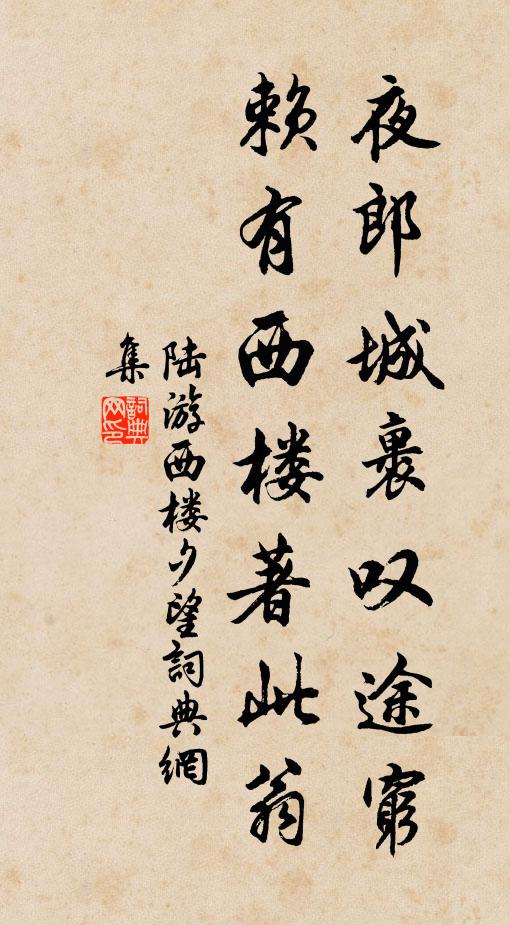 夜郎城裹叹途窮
赖有西楼著此翁
陆游西楼夕望詞典網
集
詞典网印